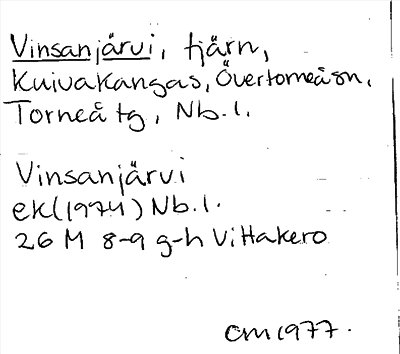 Vinsanjärvi, tjärn,
Kuivakangas, Övertorneå sn,
Torneå tg, Nb. l.
Vinsanjärvi
ek (1974) Nb. l.
26 M 8-9 g-h Vittakero
CM 1977.